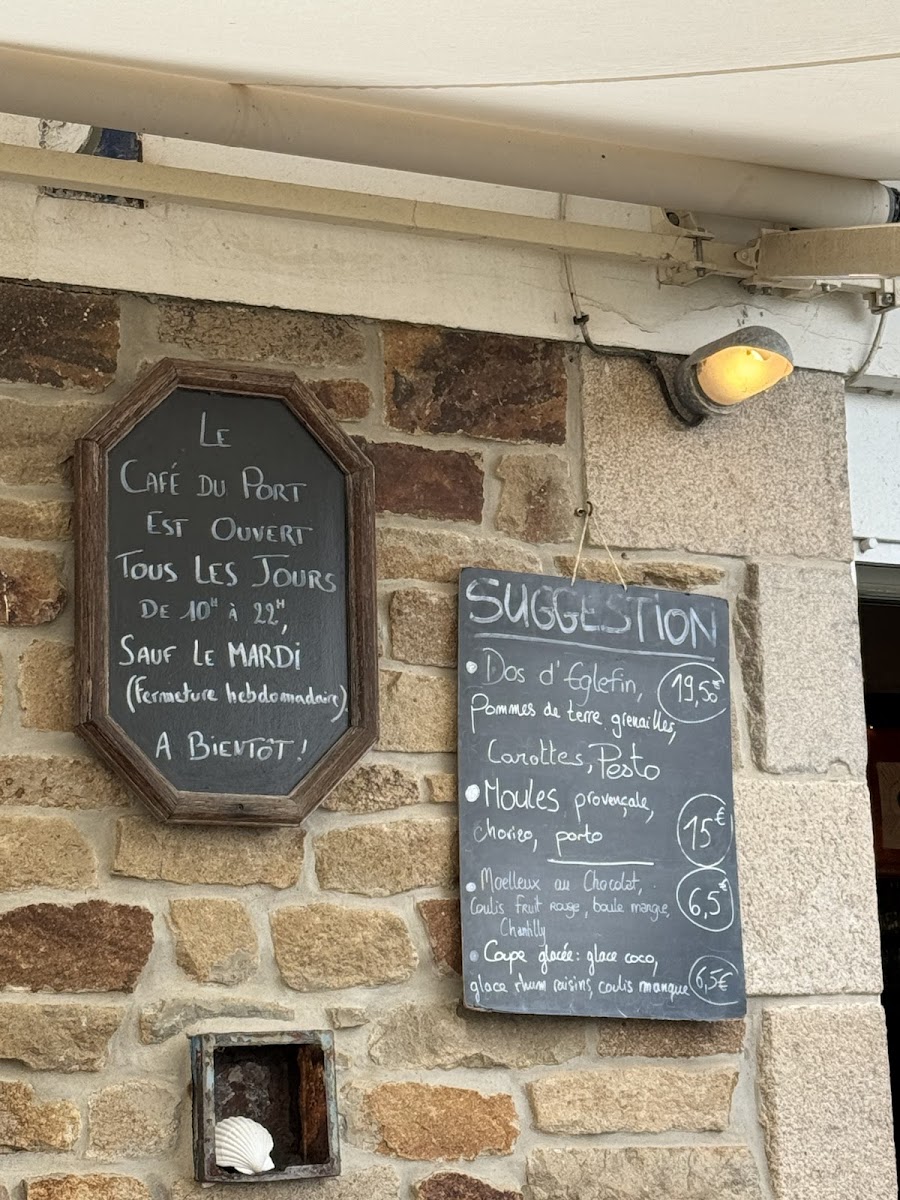 LE
CAFÉ DU PORT
EST OUVERT
TOUS LES JOURS
DE 10H À 22H,
SAUF LE MARDI
(Fermeture hebdomadaire)
A BIENTÔT !
SUGGESTION
• Dos d'Eglefin, 19,50€
Pommes de terre grenailles,
Carottes, Pesto
• Moules provençale, 15€
chorizo, porto
• Moelleux au Chocolat, 6,5€
Coulis Fruit Rouge, boule mangue,
Chantilly
• Coupe glacée: glace coco,
glace rhum raisins, coulis mangue 6,5€